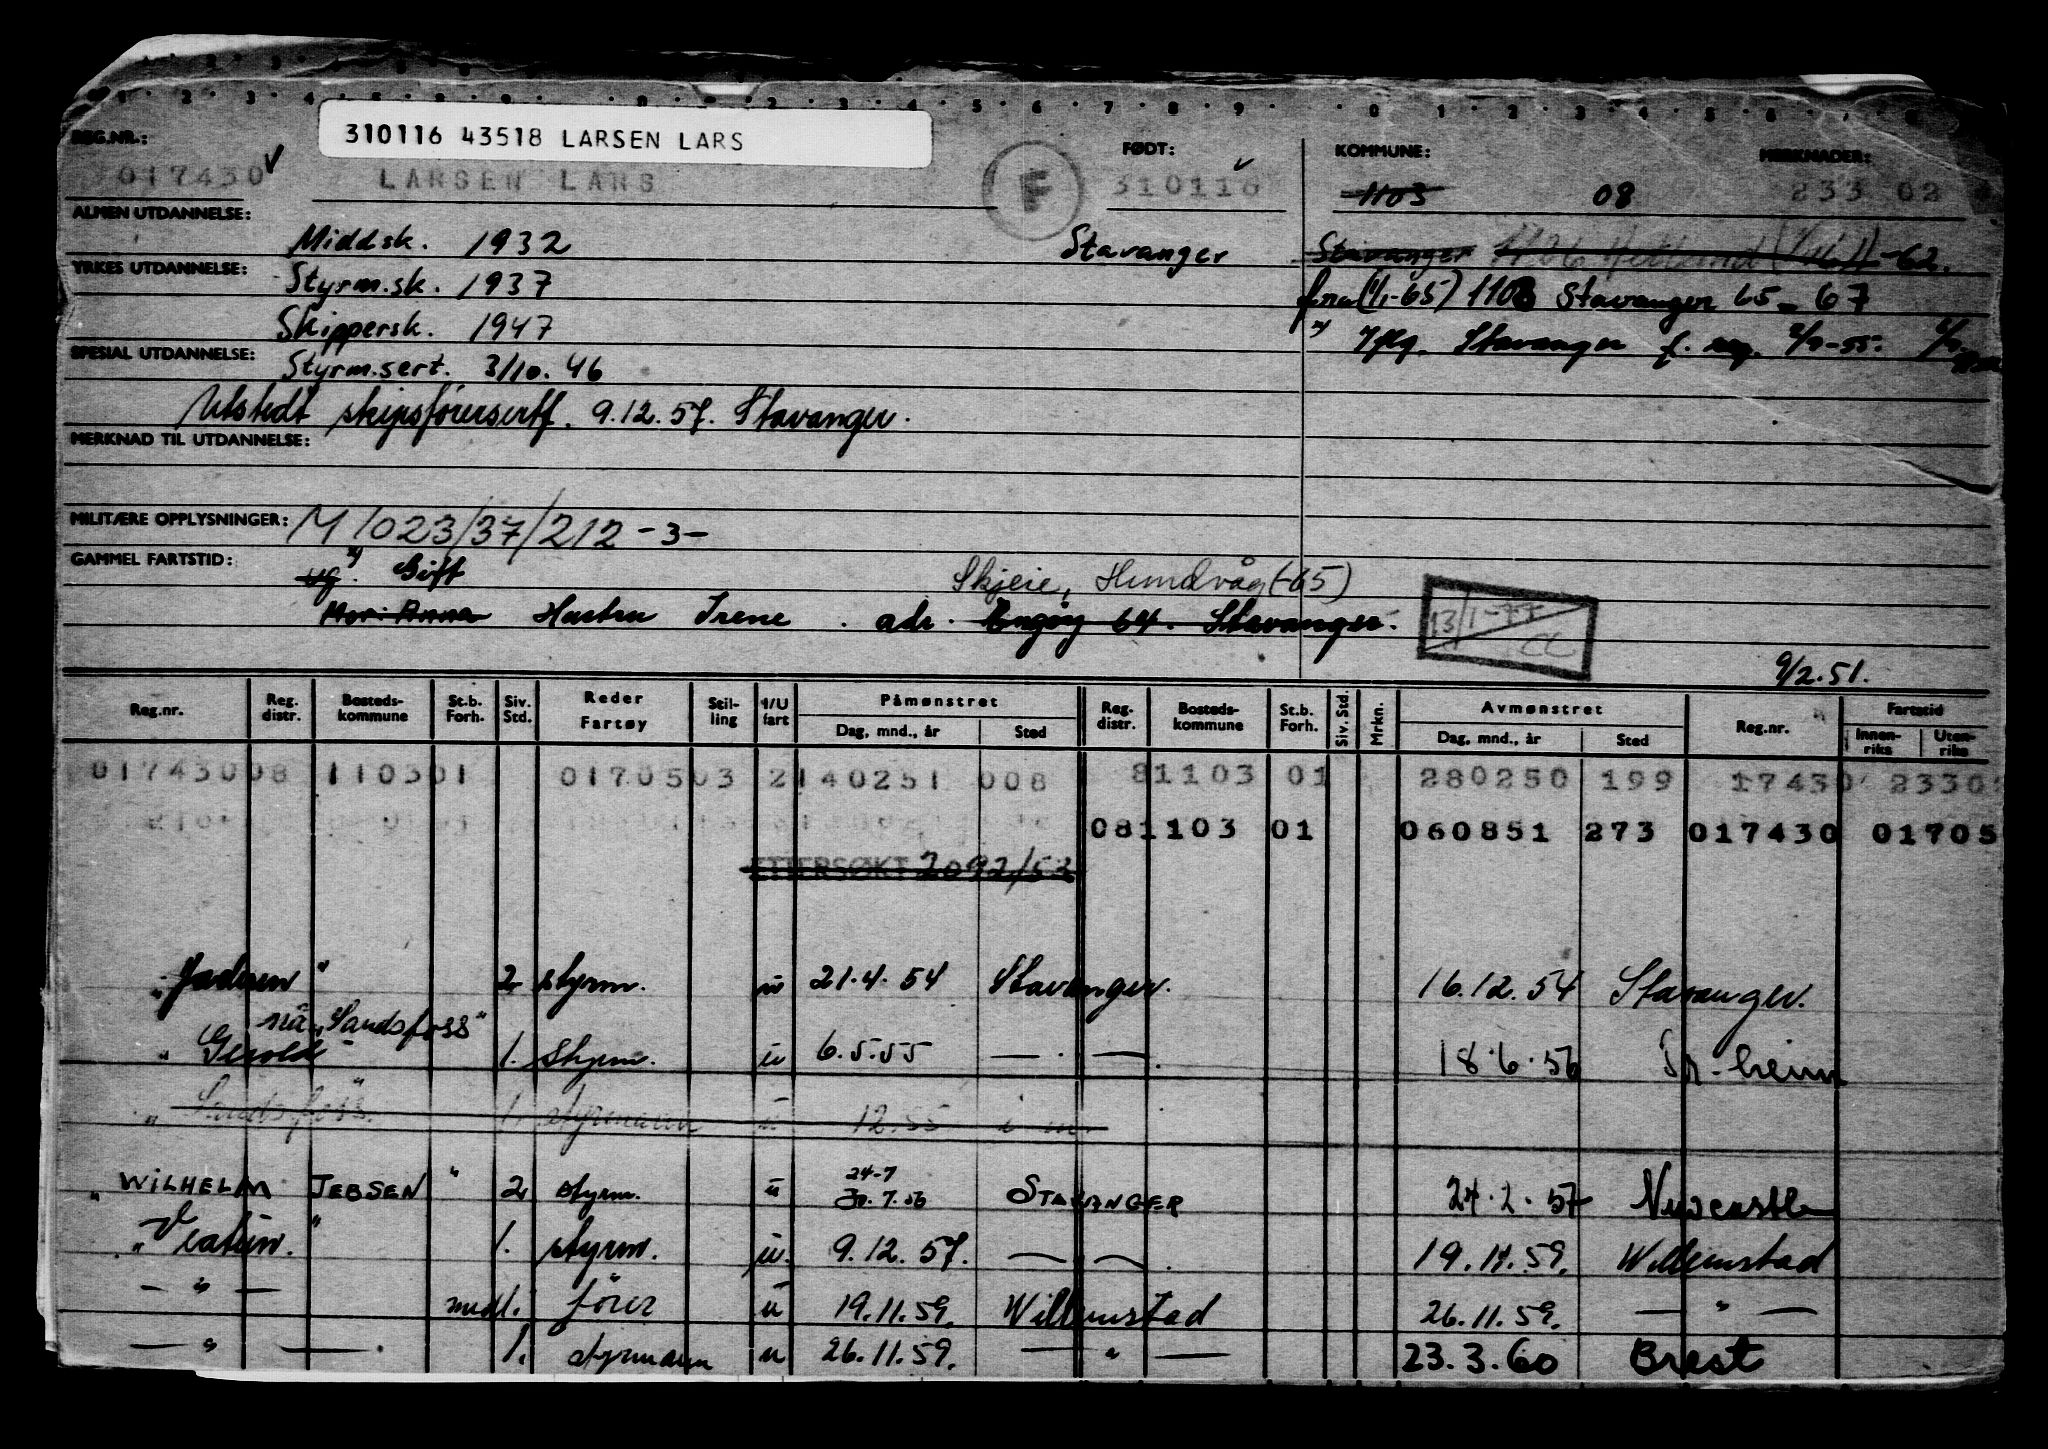 310116 43518 LARSEN LARS
REG.NR.: FØDT: KOMMUNE: MERKNADER:
017430 LARSEN LARS F 310116 1103 08 233 02
ALMEN UTDANNELSE: Middsk. 1932 Stavanger Stavanger 1106 Hetland -62.
YRKES UTDANNELSE: Styrm.sk. 1937 fra (1/1-65) 1103 Stavanger 65-67
Skippersk. 1947 Stavanger f.
SPESIAL UTDANNELSE: Styrm.sert. 3/10.46
Utstedt skipsførersertf. 9.12.57. Stavanger.
MERKNAD TIL UTDANNELSE:
MILITÆRE OPPLYSNINGER: M/023/37/212 -3-
GAMMEL FARTSTID: ug. Gift Skjeie, Hundvåg (-65)
Mor: Anna Hustru Irene . adr. Engøy 64. Stavanger. 13/1-77 CC
9/2.51.
Reg.nr. Reg. distr. Bosteds-kommune St.b. Forh. Siv. Std. Reder Fartøy Stil-ling I/U fart Påmønstret Dag, mnd., år Sted Reg. distr. Bosteds-kommune St.b. Forh. Siv. Std. Mrkn. Avmønstret Dag, mnd., år Sted Reg.nr. Fartstid Innen-riks Uten-riks
01743008 110301 0170503 2140251 008 81103 01 280250 199 17430 2330
081103 01 060851 273 017430 01705
ETTERSØKT 2092/53
"Jaderen" 2 styrm. u 21.4.54 Stavanger. 16.12.54 Stavanger.
nå "Sandsfoss"
" Gerold 1. styrm. u 6.5.55 — . — . 18.6.56 Tr.heim
" Sandsfoss" 1. styrmann u 12.55
"WILHELM JEBSEN" 2 styrm. u 24-7 30.7.56 STAVANGER 24.2.57 Newcastle
" " 1. styrm. u. 9.12.57. — — . 19.11.59. Willemstad
— " — midl. fører u 19.11.59. Willemstad 26.11.59. — " —
— " — . 1. styrmann u 26.11.59. — " — 23.3.60 Brest